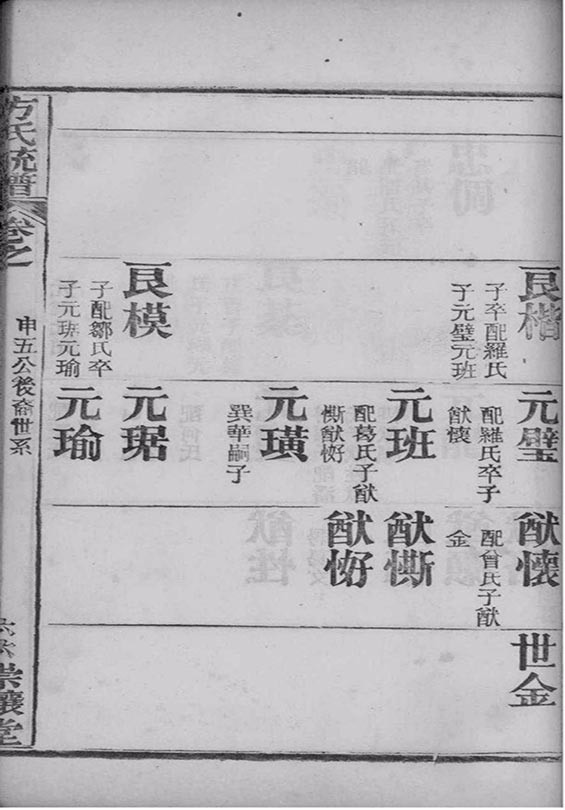 良楷
子卒配羅氏
子元璧元班
良模
子配鄒氏卒
子元班元瑜
元璧
配羅氏卒子
猷懷
元班
配葛氏子猷
猷
元璜
巽華嗣子
元琚
元瑜
猷懷
配曾氏子猷
金
猷
猷
世金
方氏統譜
卷之
申五公後裔世系
崇讓堂